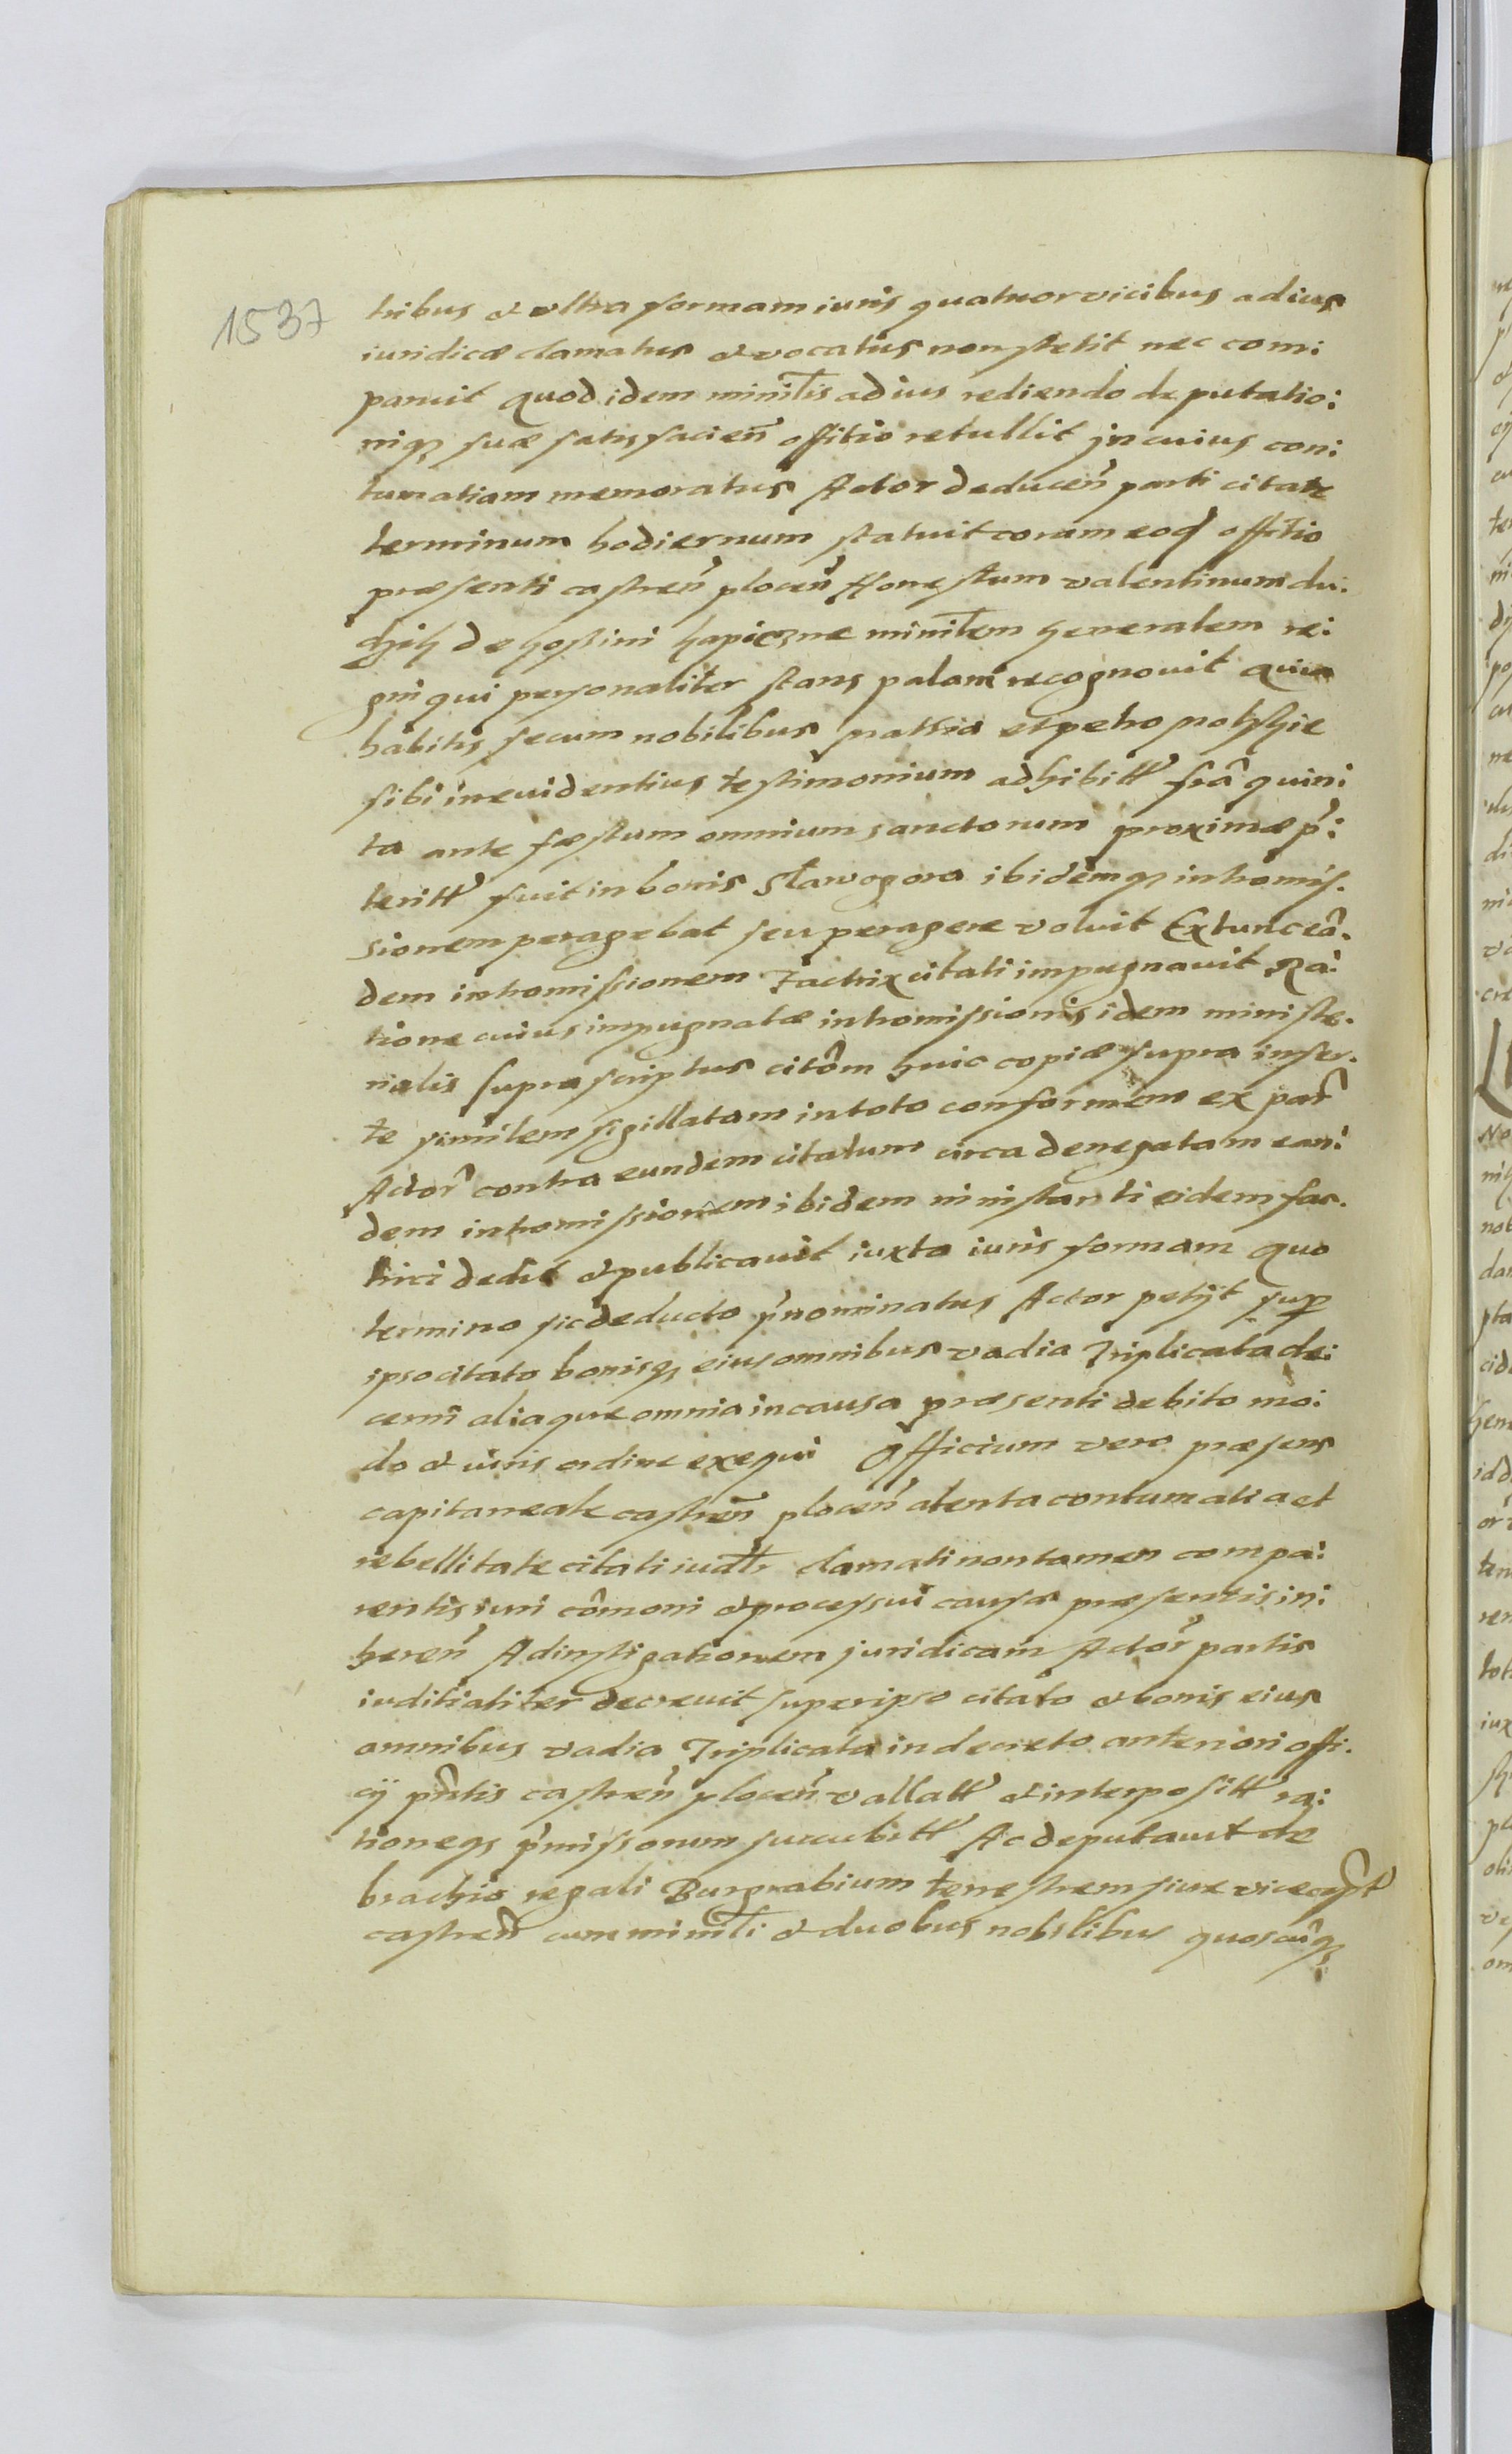 1537
tribus & vltra formam iuris quatuor vicibus ad ius
iuridicæ clamatus & vocatus non stetit nec com:
paruit quod idem miniłis ad ius rediendo deputatio:
niq₃ suæ satisfacien̄ offitio retullit jn cuius con:
tumatiam memoratus Actor deducen̄ parti citatæ
terminum hodiernum statuit coram eod offitio
præsenti castren̄ plocen̄ Honestum valentinum
de gostini miniłem generalem re:
gni qui personaliter stans palam recognouit quia
habitis secum nobilibus mathia et petro
sibi in euidentius testimonium adhibitt fr̄a quin:
ta ante fæstum omnium sanctorum proximæ p̄:
teritt fuit in bonis Sławogora ibidemq₃ intromis.
sionem peragebat seu peragere voluit Extunc eā.
dem intromissionem factrix citati impugnauit Ra:
tione cuius impugnatæ intromissionis idem ministe.
rialis suprascriptus citōm huic copiæ supra inser.
te similem sigillatam in toto conformem ex part
Actor̄ contra eundem citatum circa denegatam ean:
dem intromissionem ibidem in instanti eidem fac.
trici dedit & publicauit iuxta iuris formam quo
termino sic deducto p̄nominatus Actor petijt sup
ipso citato bonisq₃ eius omnibus vadia Triplicata de:
cerni aliaque omnia in causa præsenti debito mo:
do & iuris ordine exequi Officium vero præsens
capitaneale castren̄ plocen̄ atenta contumatia et
rebellitate citati iudłr clamati non tamen compa:
rentis iuri cōmoni & processui causæ præsentis in:
heren̄ Ad instigationem juridicam Actor̄ partis
iuditialiter decreuit super ipso citato & bonis eius
omnibus vadia Triplicata in decreto anteriori offi.
cij pn̄tis castren̄ plocen̄ vallatt & interpositt ra:
tioneq₃ p̄missorum succubitt Ac deputauit de
brachio regali Burgrabium terrestrem siue vicecapt
castren̄ cum miniłi & duobus nobilibus quoscūq₃